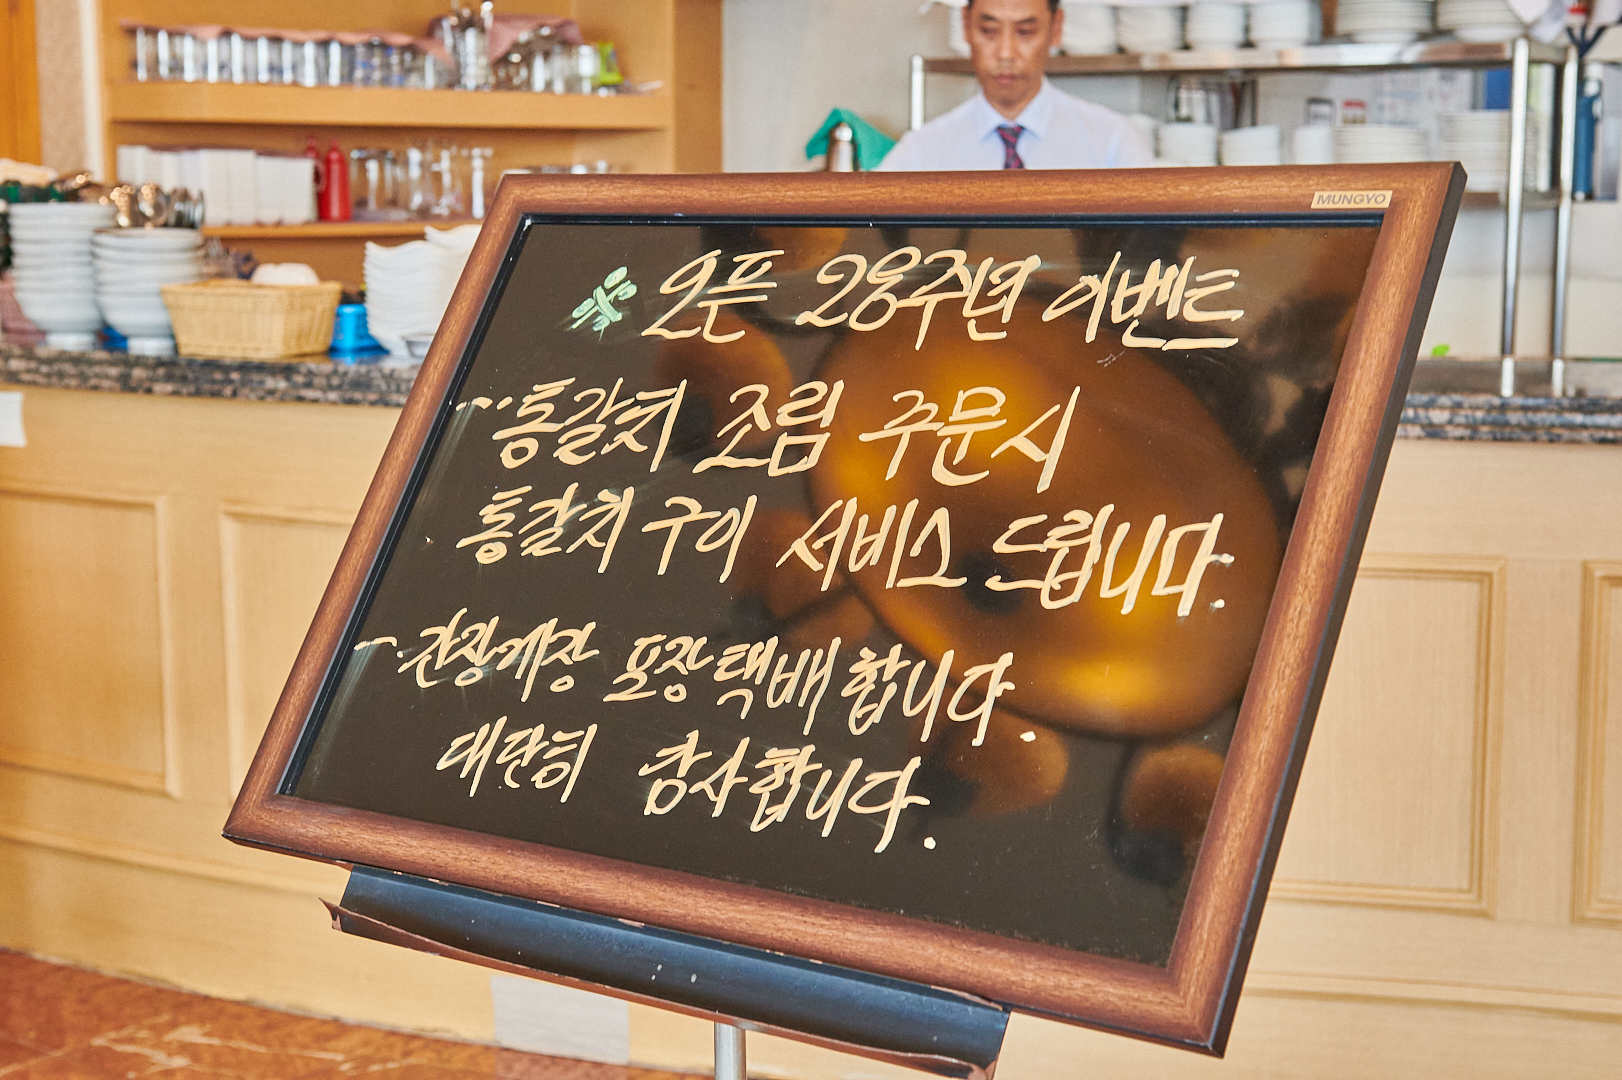 MUNGYO
※ 오픈 28주년 이벤트
~·통갈치 조림 주문시
통갈치 구이 서비스 드립니다.
~·간장게장 포장 택배 합니다.
대단히 감사합니다.